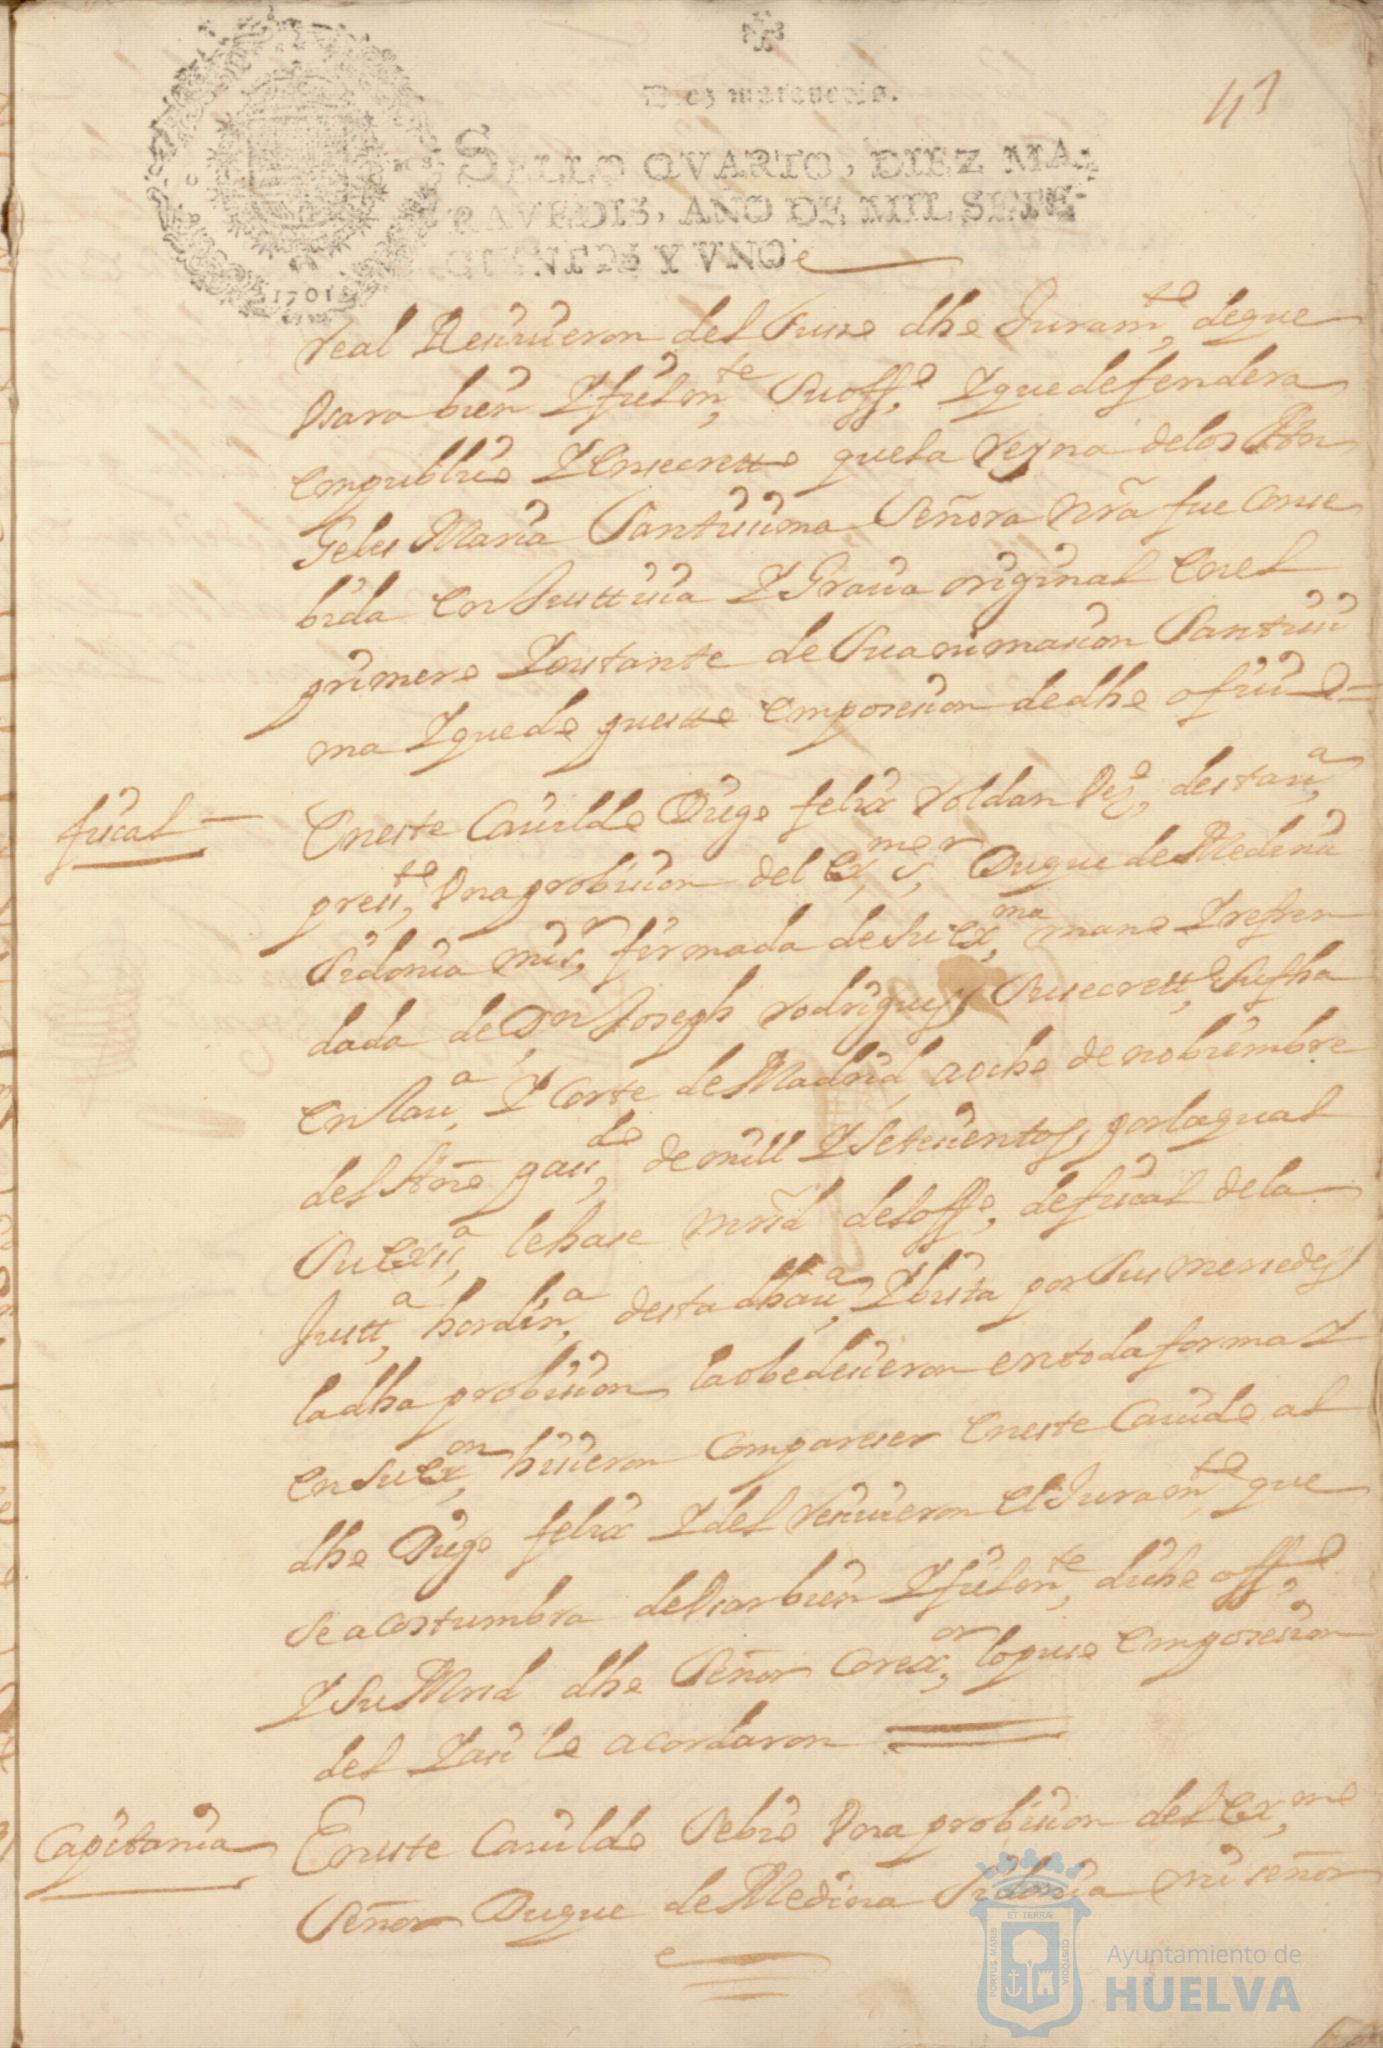 Diez maravedis.
SELLO QVARTO, DIEZ MA-
RAVEDIS, AÑO DE MIL SETE-
CIENTOS Y VNO.
1701
real Reciuieron del Suso dho Juramto, deque
Vsara bien Y fielmte, Su offo, Y que defendera
en publico Y en secretto que la Reyna de los An
Geles Maria Santissima Señora nra fue Conse
bida en Justticia Y Gracia original en el
primero Ynstante de Su animasion Santissi
ma Y quedo puestto en posesion de dho ofisio=
fiscal
En este Cauildo Diego felix roldan Vzo, desta va,
presto, Vna probision del exmo sr, Duque de Medina
Sidonia mi sr, firmada de Su exma, mano Y refren
dada de Dn Joseph rodrigues, Su secretto, Su fha
en la va, Y Corte de Madrid a ocho de nobiembre
del Año pasdo, de mill Y Setesientos, por la qual
Su Exa, le hase mrsd del offo, de fiscal de la
Justta, hordina, desta dha va, Y bista por Sus mersedes
la dha probision la obedesieron en toda forma Y
en Su exon, hisieron Compareser en este Cauildo al
dho Diego felix Y del Reciuieron el Juramto, que
se acostumbra de Vsar bien Y fielmte, dicho offo,
Y Su Mrsd dho Señor Corexor, lo puso en posesion
del Y asi lo acordaron
Capitania
En este Cauildo Se bio Vna probision del exmo
Señor Duque de Medina Sidonia mi señor
PORTUS MARIS
ET TERRÆ
CUSTODIA
Ayuntamiento de
HUELVA